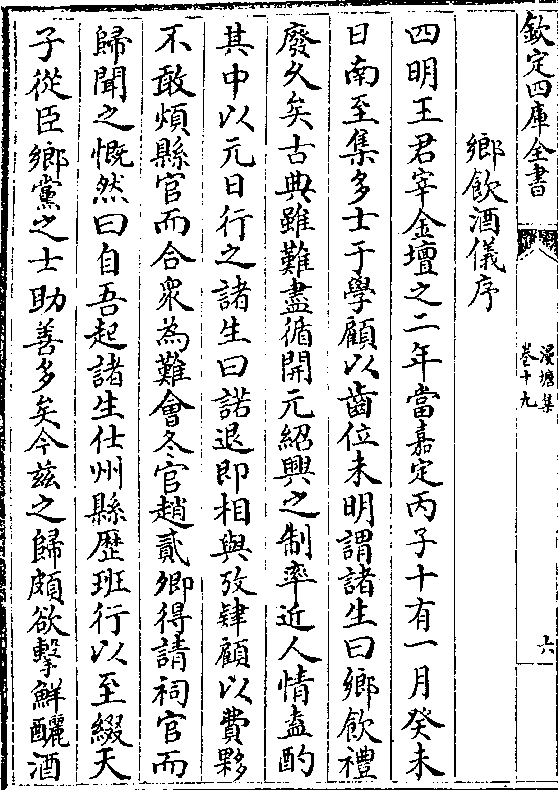 欽定四庫全書
漫塘集
卷十九
六
鄉飲酒儀序
四明王君宰金壇之二年當嘉定丙子十有一月癸未
日南至集多士于學顧以齒位未明謂諸生曰鄉飲禮
廢久矣古典雖難盡循開元紹興之制率近人情盍酌
其中以元日行之諸生曰諾退即相與攷肄顧以費夥
不敢煩縣官而合衆為難會冬官趙貳卿得請祠官而
歸聞之慨然曰自吾起諸生仕州縣歷班行以至綴天
子從臣鄉黨之士助善多矣今兹之歸頗欲擊鮮釃酒